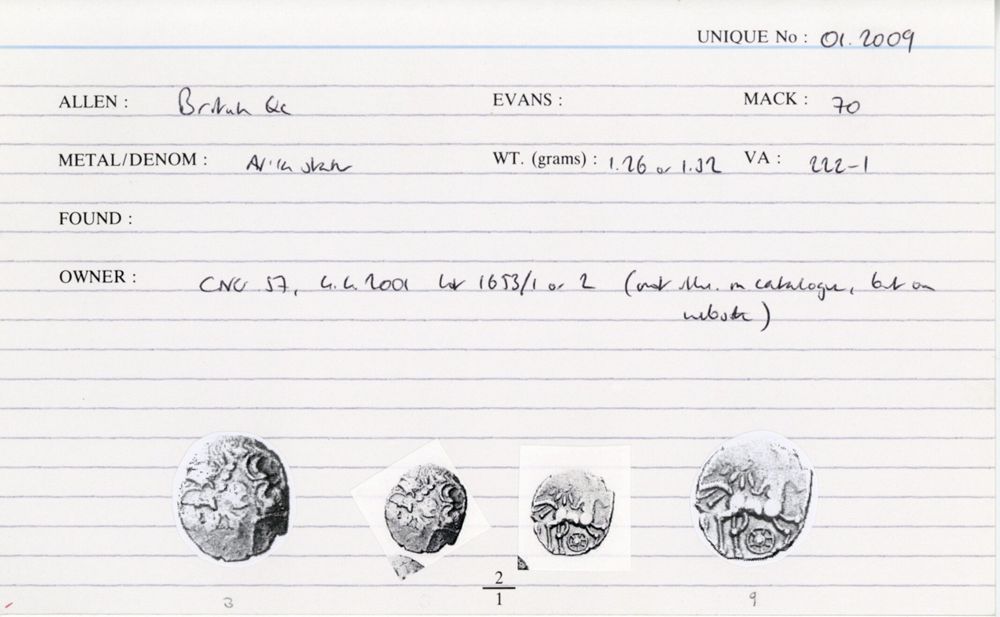 UNIQUE No : 01.2009
ALLEN : British Qc EVANS : MACK : 70
METAL/DENOM : AV ¼ stater WT. (grams) : 1.26 or 1.32 VA : 222-1
FOUND :
OWNER : CNG 57, 4.4.2001 lot 1653/1 or 2 (not illu. in catalogue, but on
website)
2
3 1 9